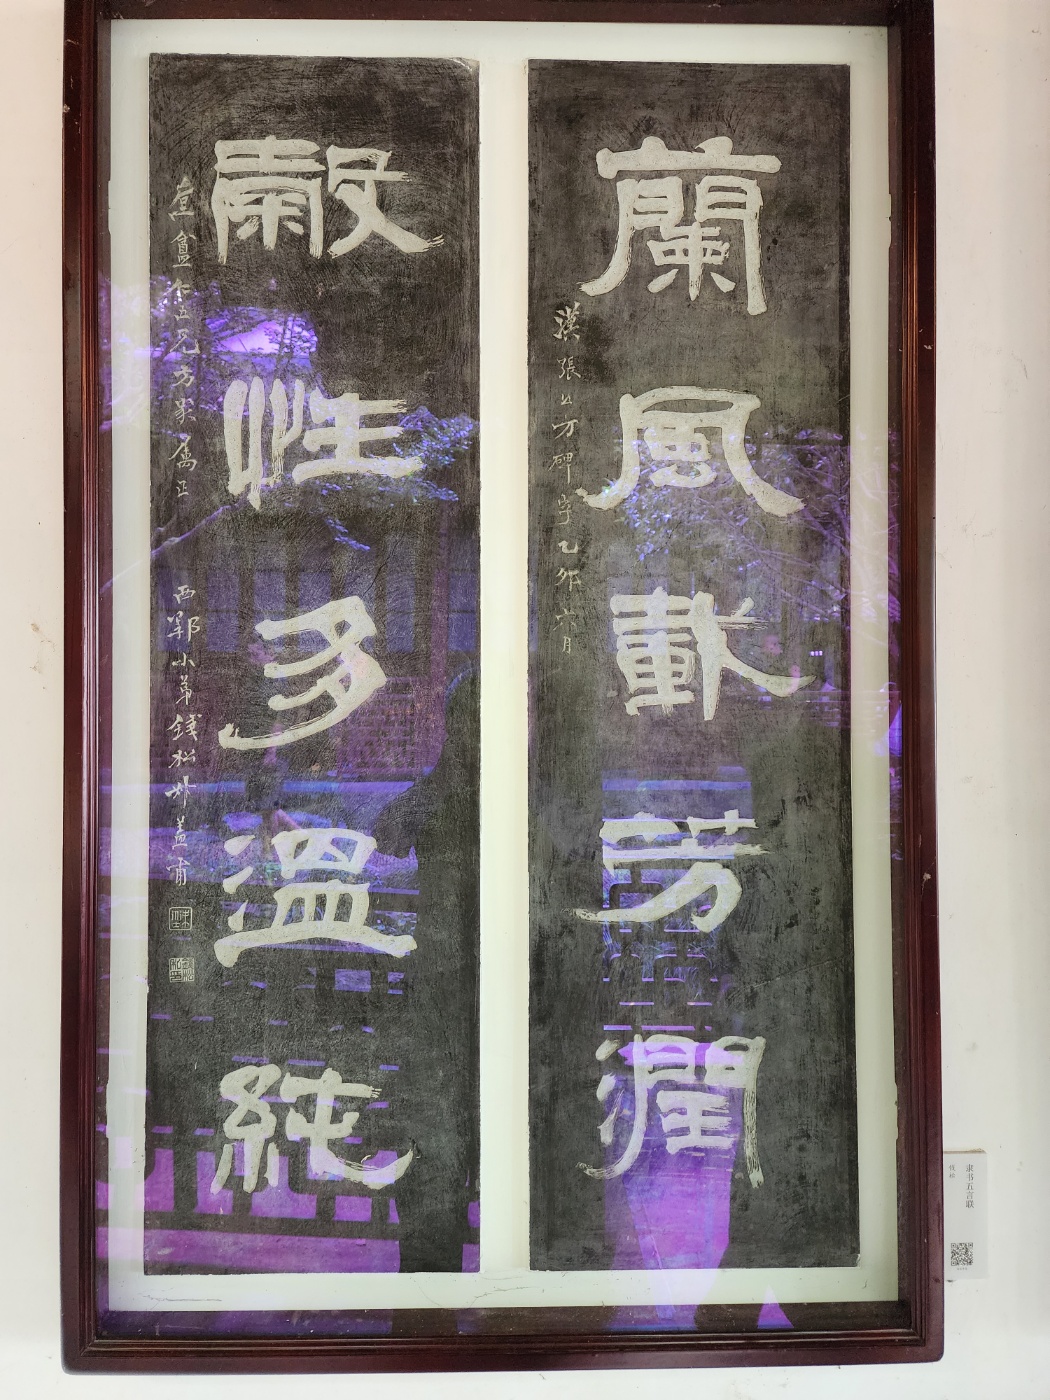 蘭風載芳潤
漢張公方碑字乙卯六月
榖性多溫純
盦仝五兄方家属正
西郭小弟錢松叔蓋甫
隶书五言联
钱松